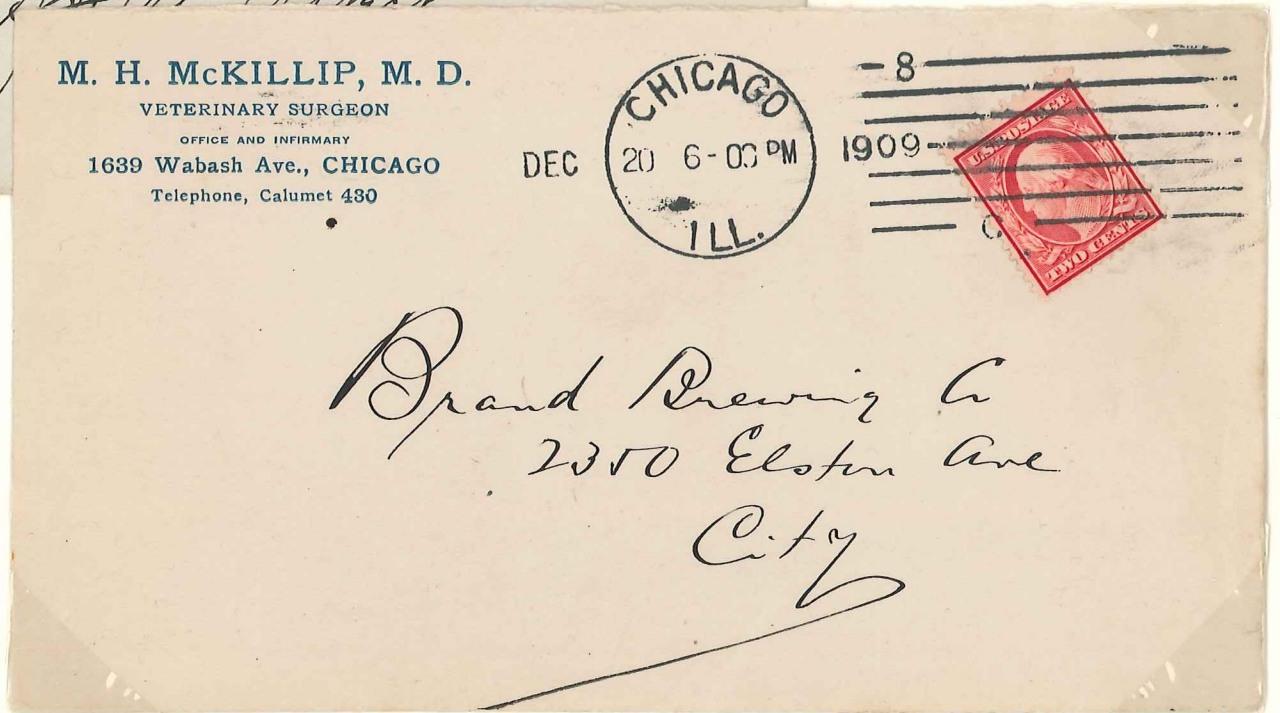 M. H. McKILLIP, M. D.
VETERINARY SURGEON
OFFICE AND INFIRMARY
1639 Wabash Ave., CHICAGO
Telephone, Calumet 430
CHICAGO
DEC 20 6-00 PM 1909
ILL.
8
C
U.S. POSTAGE
TWO CENTS
Brand Brewing Co
2350 Elston Ave
City